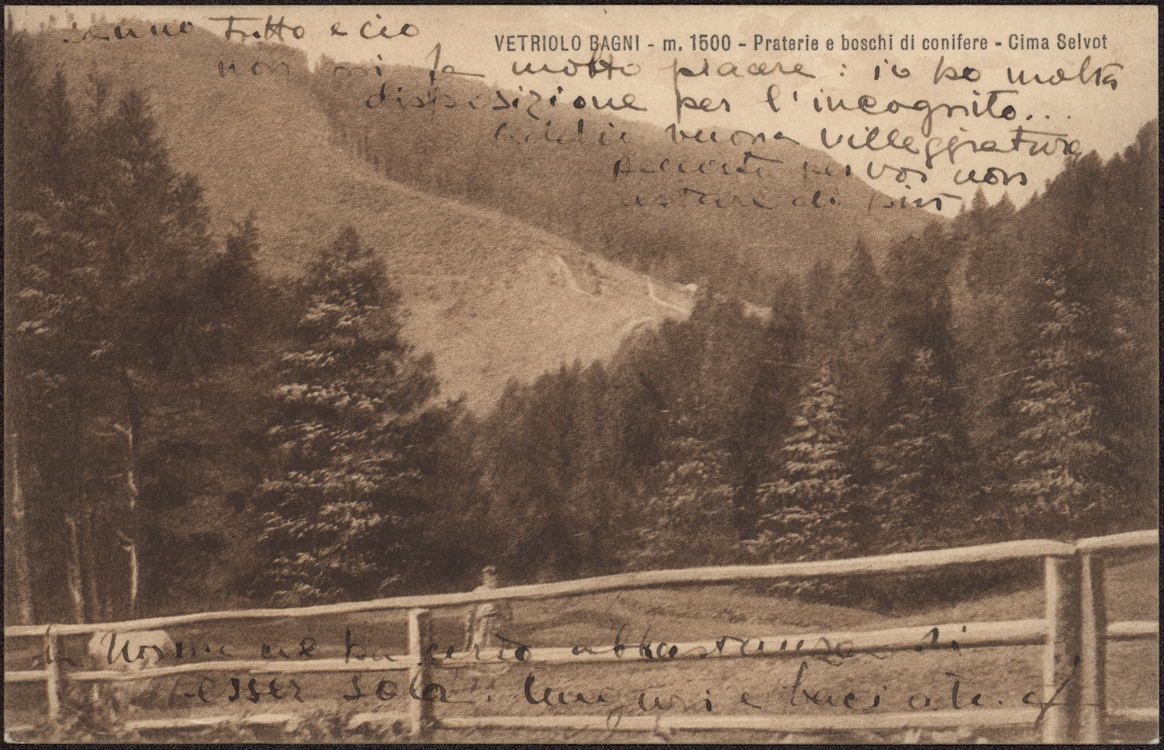 sanno tutto e ciò
VETRIOLO BAGNI - m. 1500 - Praterie e boschi di conifere - Cima Selvot
non mi fa molto piacere : io ho molta
disposizione per l'incognito...
Addio buona villeggiatura
per voi non
di più
Norma ne ha abbastanza di
esser sola. Auguri e baci a te.